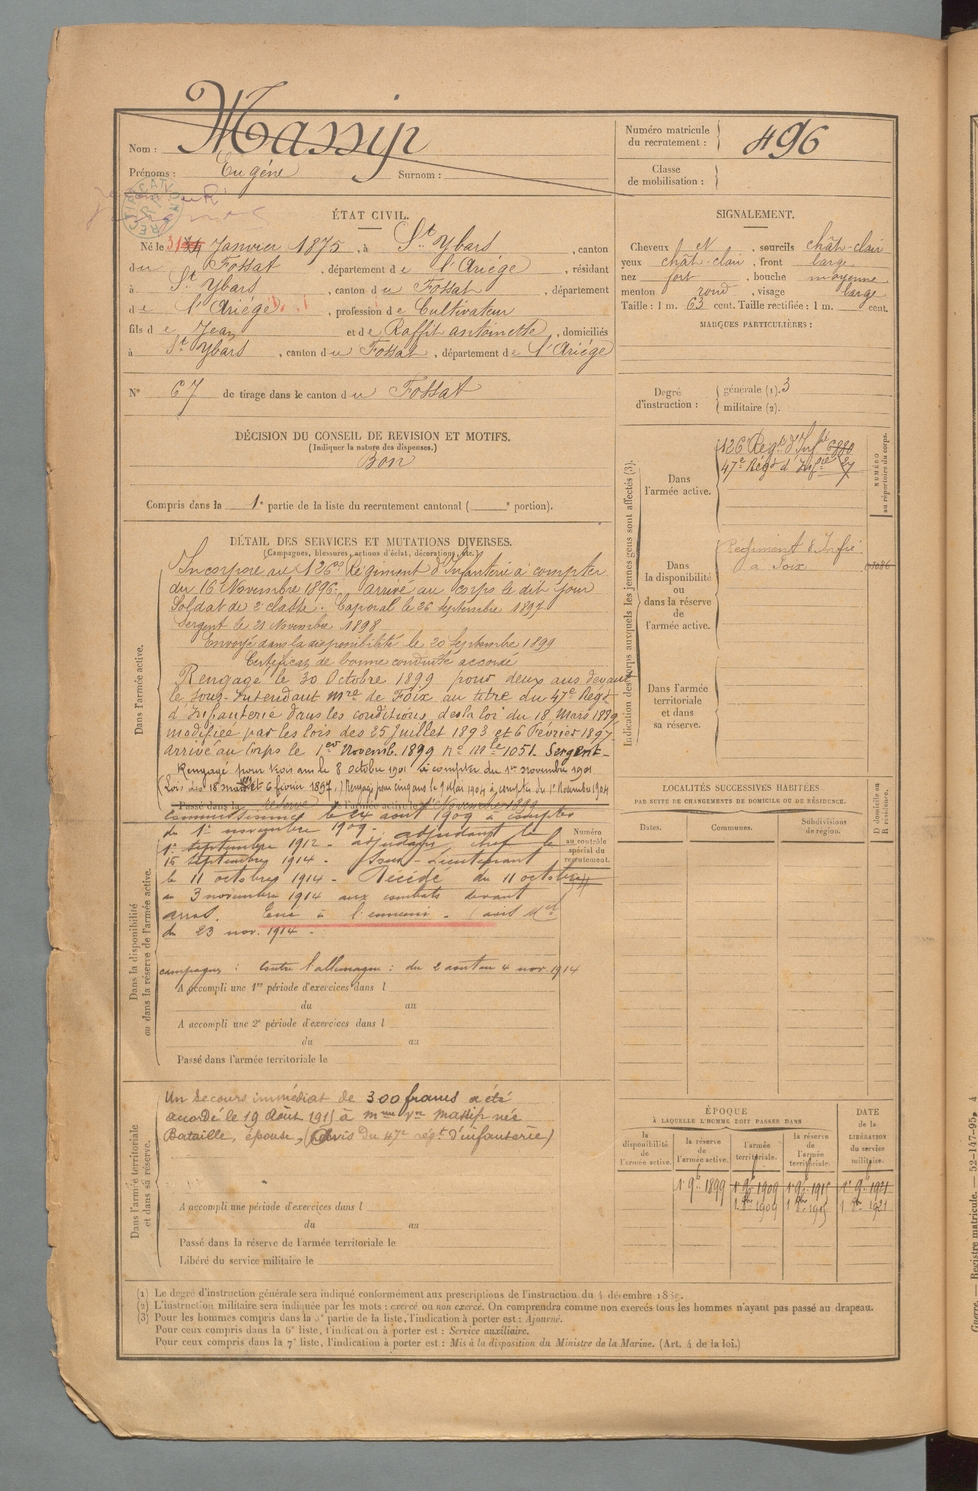 Massip
Nom :
Numéro matricule
du recrutement :
496
Prénoms : Eugène Surnom :
Classe
de mobilisation :
RECTIFICATION
ÉTAT CIVIL.
Né le 31 Janvier 1875, à St Ybars, canton
du Fossat, département de l'Ariège, résidant
à St Ybars, canton du Fossat, département
de l'Ariège, profession de Cultivateur
fils de Jean et de Raffit antoinette, domiciliés
à St Ybars, canton du Fossat, département de l'Ariége
SIGNALEMENT.
Cheveux N, sourcils chât-clair
yeux chât-clair, front large
nez fort, bouche moyenne
menton rond, visage large
Taille : 1 m. 63 cent. Taille rectifiée : 1 m. cent.
MARQUES PARTICULIÈRES :
N° 67 de tirage dans le canton du Fossat
Degré
d'instruction :
générale (1). 3
militaire (2).
DÉCISION DU CONSEIL DE REVISION ET MOTIFS.
(Indiquer la nature des dispenses.)
Bon
Compris dans la 1e partie de la liste du recrutement cantonal ( e portion).
Indication des corps auxquels les jeunes gens sont affectés (3).
NUMÉRO
au répertoire du corps.
Dans
l'armée active.
126 Régt d'Infie 6980
47e Régt d'Infie 27
Dans
la disponibilité
ou
dans la réserve
de
l'armée active.
Régiment d'Infie
à Foix
Dans l'armée
territoriale
et dans
sa réserve.
DÉTAIL DES SERVICES ET MUTATIONS DIVERSES.
(Campagnes, blessures, actions d'éclat, décorations, etc.)
Dans l'armée active.
Incorporé au 126e Régiment d'Infanterie à compter
du 16 Novembre 1896. arrivé au corps le dit jour
Soldat de 2e classe. Caporal le 26 septembre 1897
Sergent le 21 Novembre 1898
Envoyé dans la disponibilité le 20 Septembre 1899
Certificat de bonne conduite accordé
Rengagé le 30 Octobre 1899 pour deux ans devant
le Sous-Intendant Mre de Foix au titre du 47e Régt
d'Infanterie dans les conditions de la loi du 18 Mars 1889
modifiée par les lois des 25 juillet 1893 et 6 Fevrier 1897
arrivé au Corps le 1er Novemb. 1899 No Mle 1051. Sergent
Rengagé pour trois ans le 8 octobre 1901 à compter du 1er novembre 1901
(Lois des 18 mars et 6 février 1897.) Rengagé pour cinq ans le 9 Mai 1904 à compter du 1er Novembre 1904
Passé dans la réserve de l'armée active le 1er Novembre 1899
Dans la disponibilité
ou dans la réserve de l'armée active.
Numéro
au contrôle
spécial du
recrutement.
Commissionné le 24 aout 1909 à compter
du 1er novembre 1909. adjudant le
1er septembre 1912 - adjudant chef le
15 septembre 1914 - Sous-Lieutenant
le 11 octobre 1914 - Décédé du 11 octobre
au 3 novembre 1914 aux combats devant
arras. Tué à l'ennemi. (avis Mel
du 23 nov. 1914 -
campagnes : contre l'allemagne : du 2 aout au 4 nov 1914
A accompli une 1re période d'exercices dans l
du au
A accompli une 2e période d'exercices dans l
du au
Passé dans l'armée territoriale le
Dans l'armée territoriale
et dans sa réserve.
Un secours immédiat de 300 francs a été
accordé le 19 Août 1915 à Mme Vve Massip née
Bataille, épouse, (avis du 47e régt d'infanterie)
A accompli une période d'exercices dans l
du au
Passé dans la réserve de l'armée territoriale le
Libéré du service militaire le
LOCALITÉS SUCCESSIVES HABITÉES
PAR SUITE DE CHANGEMENTS DE DOMICILE OU DE RÉSIDENCE.
Dates. Communes. Subdivisions
de région.
D domicile ou
R résidence.
ÉPOQUE
À LAQUELLE L'HOMME DOIT PASSER DANS
DATE
de la
LIBÉRATION
du service
militaire.
la
disponibilité
de
l'armée active.
la réserve
de
l'armée active.
l'armée
territoriale.
la réserve
de
l'armée
territoriale.
1er 9bre 1899 1er 9bre 1909 1er 9bre 1915 1er 9bre 1921
1 8bre 1909 1 8bre 1915 1 8bre 1921
(1) Le degré d'instruction générale sera indiqué conformément aux prescriptions de l'instruction du 4 décembre
(2) L'instruction militaire sera indiquée par les mots : exercé ou non exercé. On comprendra comme non exercés tous les hommes n'ayant pas passé au drapeau.
(3) Pour les hommes compris dans la 5e partie de la liste, l'indication à porter est : Ajourné.
Pour ceux compris dans la 6e liste, l'indication à porter est : Service auxiliaire.
Pour ceux compris dans la 7e liste, l'indication à porter est : Mis à la disposition du Ministre de la Marine. (Art. 4 de la loi.)
Guerre. — Registre matricule. — 52-147-95. 4